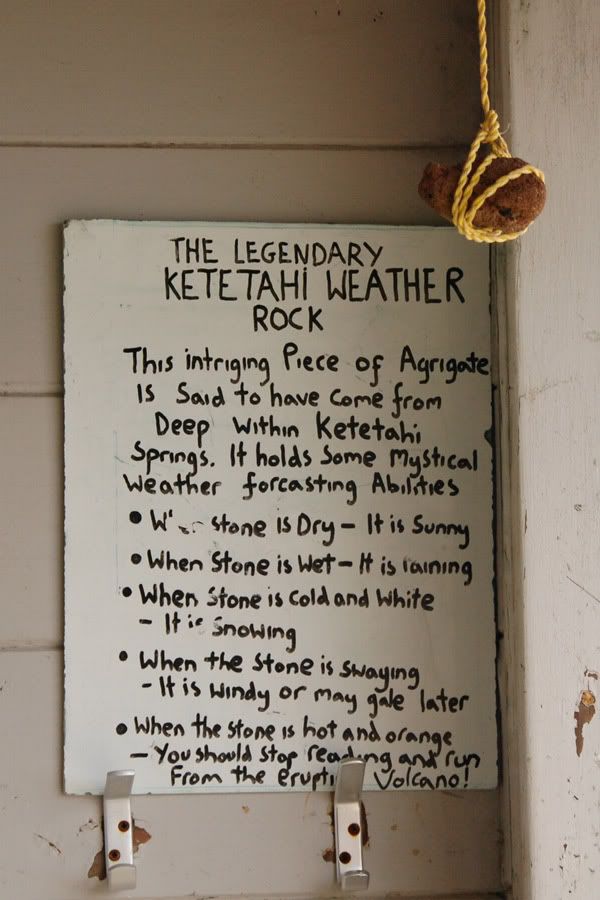 THE LEGENDARY
KETETAHI WEATHER
ROCK
This intriging Piece of Agrigate
Is Said to have come from
Deep Within Ketetahi
Springs. It holds Some Mystical
Weather forcasting Abilities
• stone is Dry – It is Sunny
• When Stone is Wet – It is raining
• When Stone is Cold and White
– It is Snowing
• When the Stone is swaying
- It is windy or may gale later
• When the stone is hot and orange
– You should stop reading and run
From the Volcano!